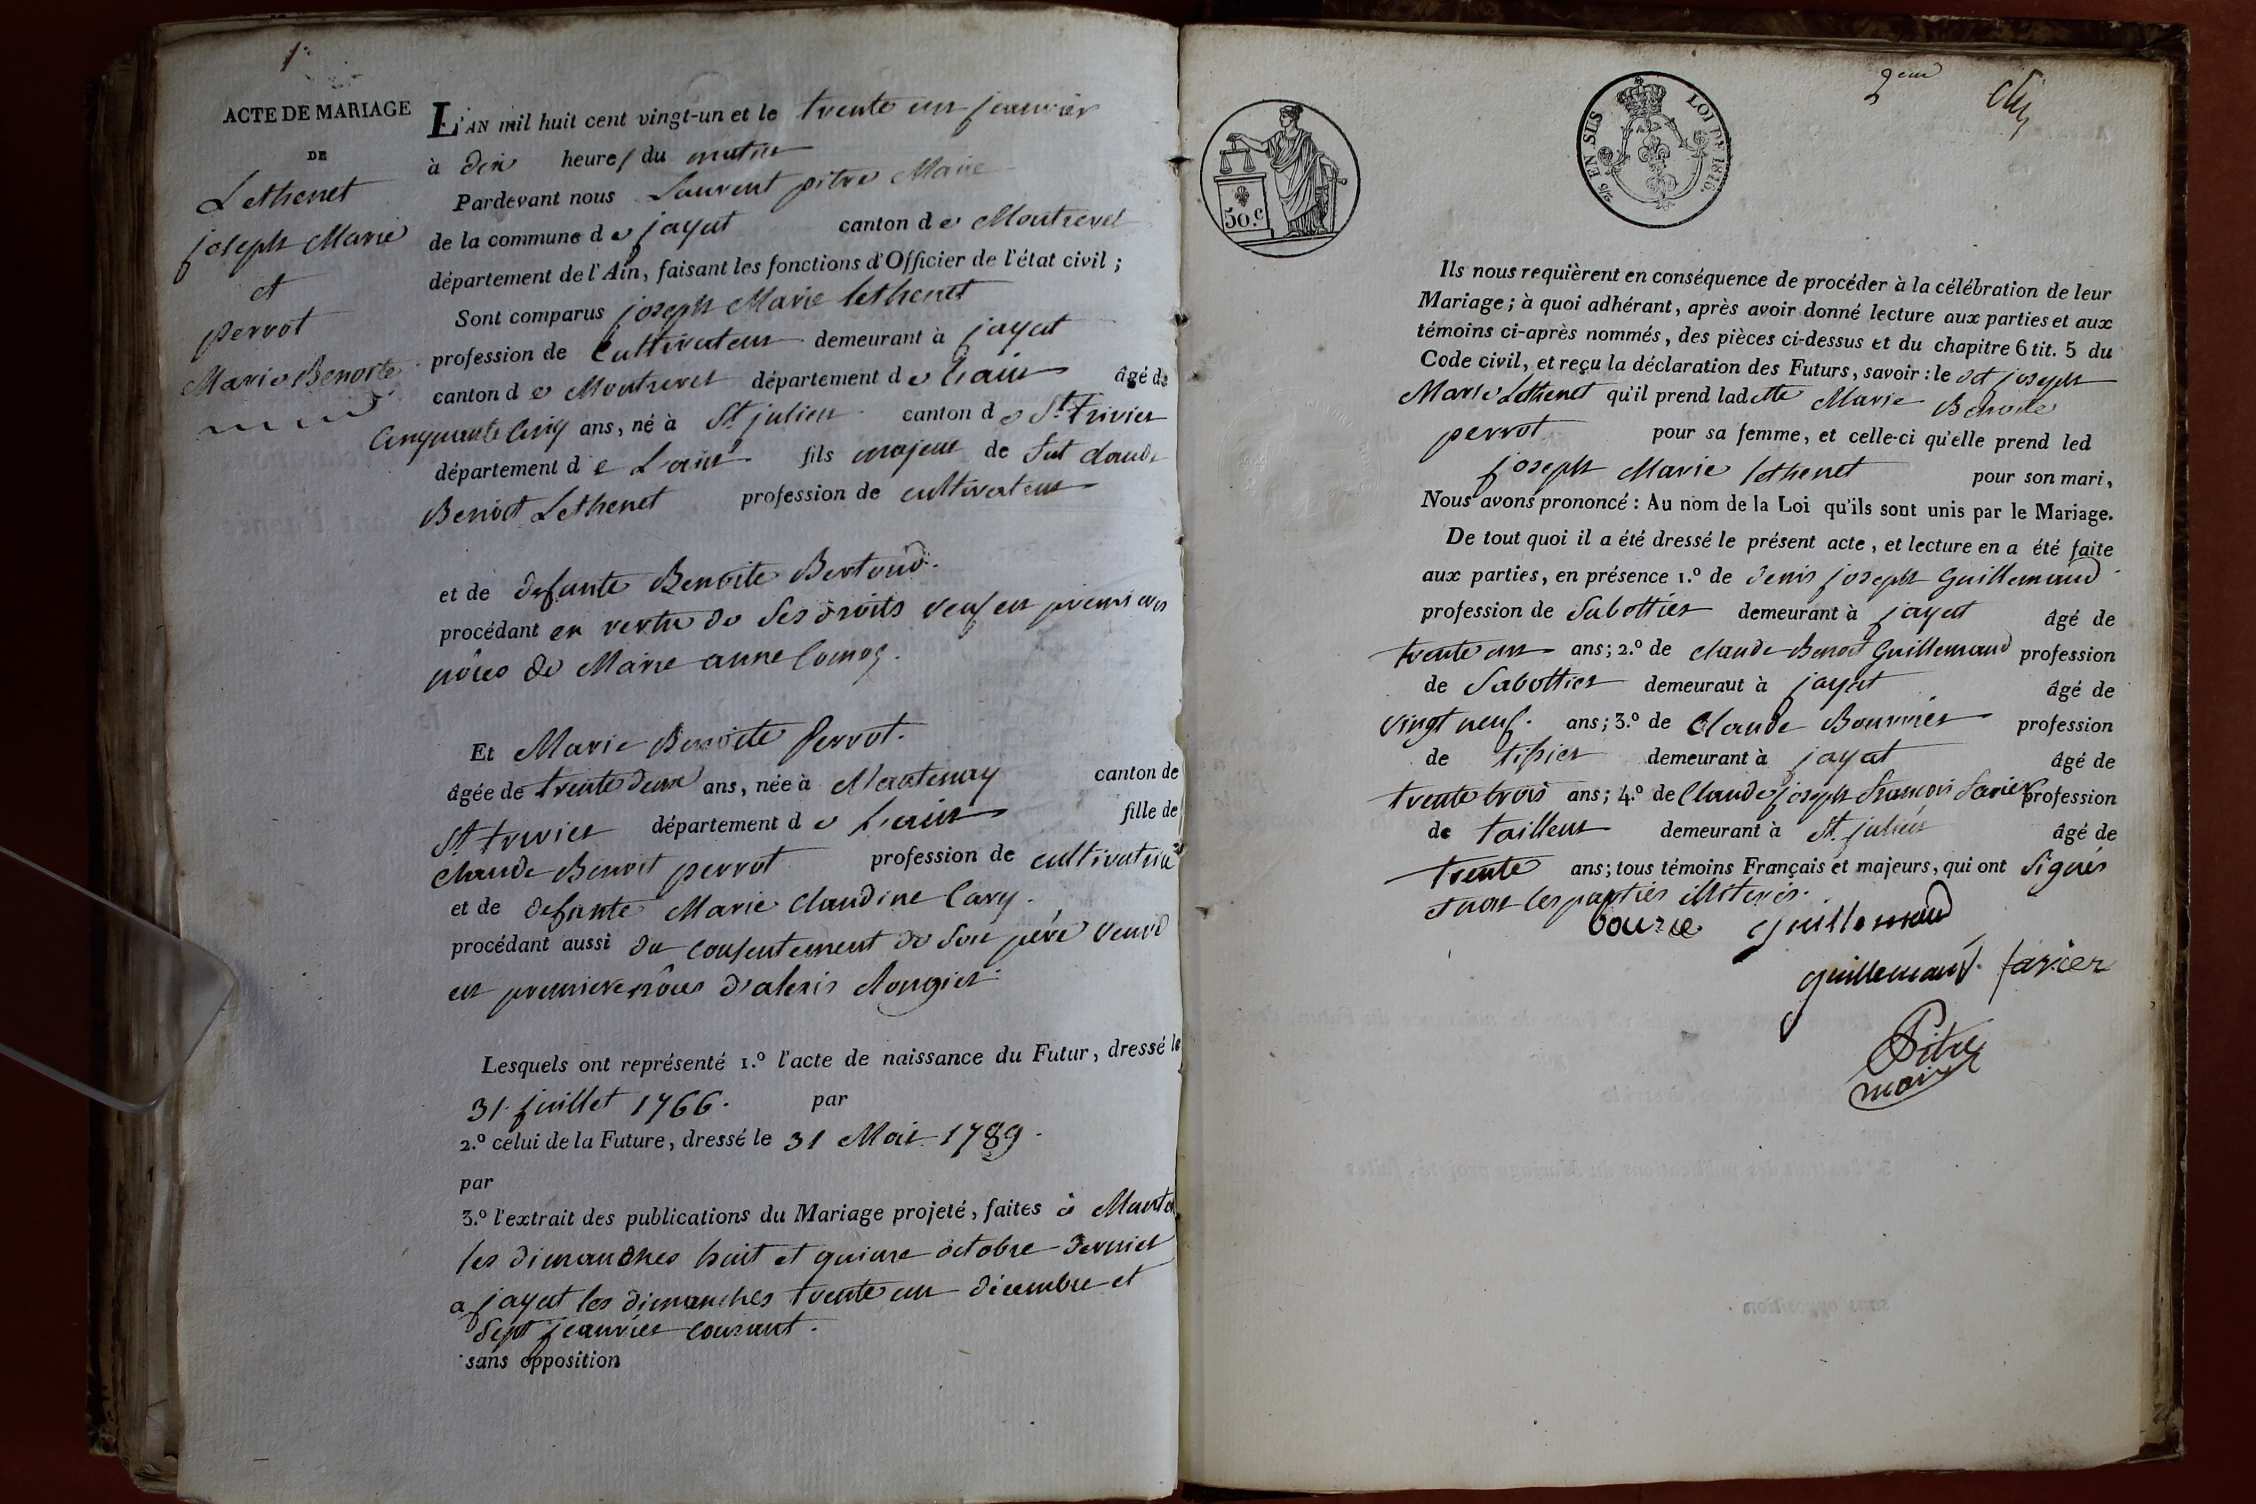 1.
ACTE DE MARIAGE
DE
Lethenet
joseph Marie
et
perrot
Marie Benoite
L'AN mil huit cent vingt-un et le trente un janvier
à dix heures du matin
Pardevant nous Laurent pitre Maire
de la commune de jayat canton de Montrevel
département de l'Ain, faisant les fonctions d'Officier de l'état civil ;
Sont comparus joseph Marie lethenet
profession de Cultivateur demeurant à jayat
canton de Montrevel département de Lain âgé de
Cinquante Cinq ans, né à St julien canton de St Trivier
département de Lain fils majeur de fut claude
Benoit Lethenet profession de cultivateur
et de defunte Benoite Bertoud.
procédant en vertu de ses droits veuf en premieres
nôces de Marie anne
Et Marie Benoite Perrot.
âgée de trente deux ans, née à Mantenay canton de
St trivier département de Lain fille de
claude Benoit perrot profession de cultivateur
et de defunte Marie Claudine Cary.
procédant aussi du consentement de son père veuve
en premiere nôces d'alexis
Lesquels ont représenté 1.º l'acte de naissance du Futur, dressé le
31 juillet 1766. par
2.º celui de la Future, dressé le 31 Mai 1789.
par
3.º l'extrait des publications du Mariage projeté, faites à
les dimanches huit et quinze octobre dernier
a jayat les dimanches trente un décembre et
sept jeanvier courant.
sans opposition
2eme
50.c
LOI DE 1816.
Ils nous requièrent en conséquence de procéder à la célébration de leur
Mariage ; à quoi adhérant, après avoir donné lecture aux parties et aux
témoins ci-après nommés, des pièces ci-dessus et du chapitre 6 tit. 5 du
Code civil, et reçu la déclaration des Futurs, savoir : le dt joseph
Marie Lethenet qu'il prend ladette Marie Benoite
perrot pour sa femme, et celle-ci qu'elle prend led
joseph Marie lethenet pour son mari,
Nous avons prononcé : Au nom de la Loi qu'ils sont unis par le Mariage.
De tout quoi il a été dressé le présent acte, et lecture en a été faite
aux parties, en présence 1.º de denis joseph Guillemaud
profession de Sabottier demeurant à jayat âgé de
trente un ans ; 2.º de claude Benoit Guillemaud profession
de Sabottier demeuraut à jayat âgé de
vingt neuf. ans ; 3.º de Claude profession
de tissier demeurant à jayat âgé de
trente trois ans ; 4.º de Claude joseph francois farier profession
de tailleur demeurant à St. julien âgé de
trente ans ; tous témoins Français et majeurs, qui ont signés
et non les parties illiterés.
guillemaud
guillemaud. farier
Pitre
maire